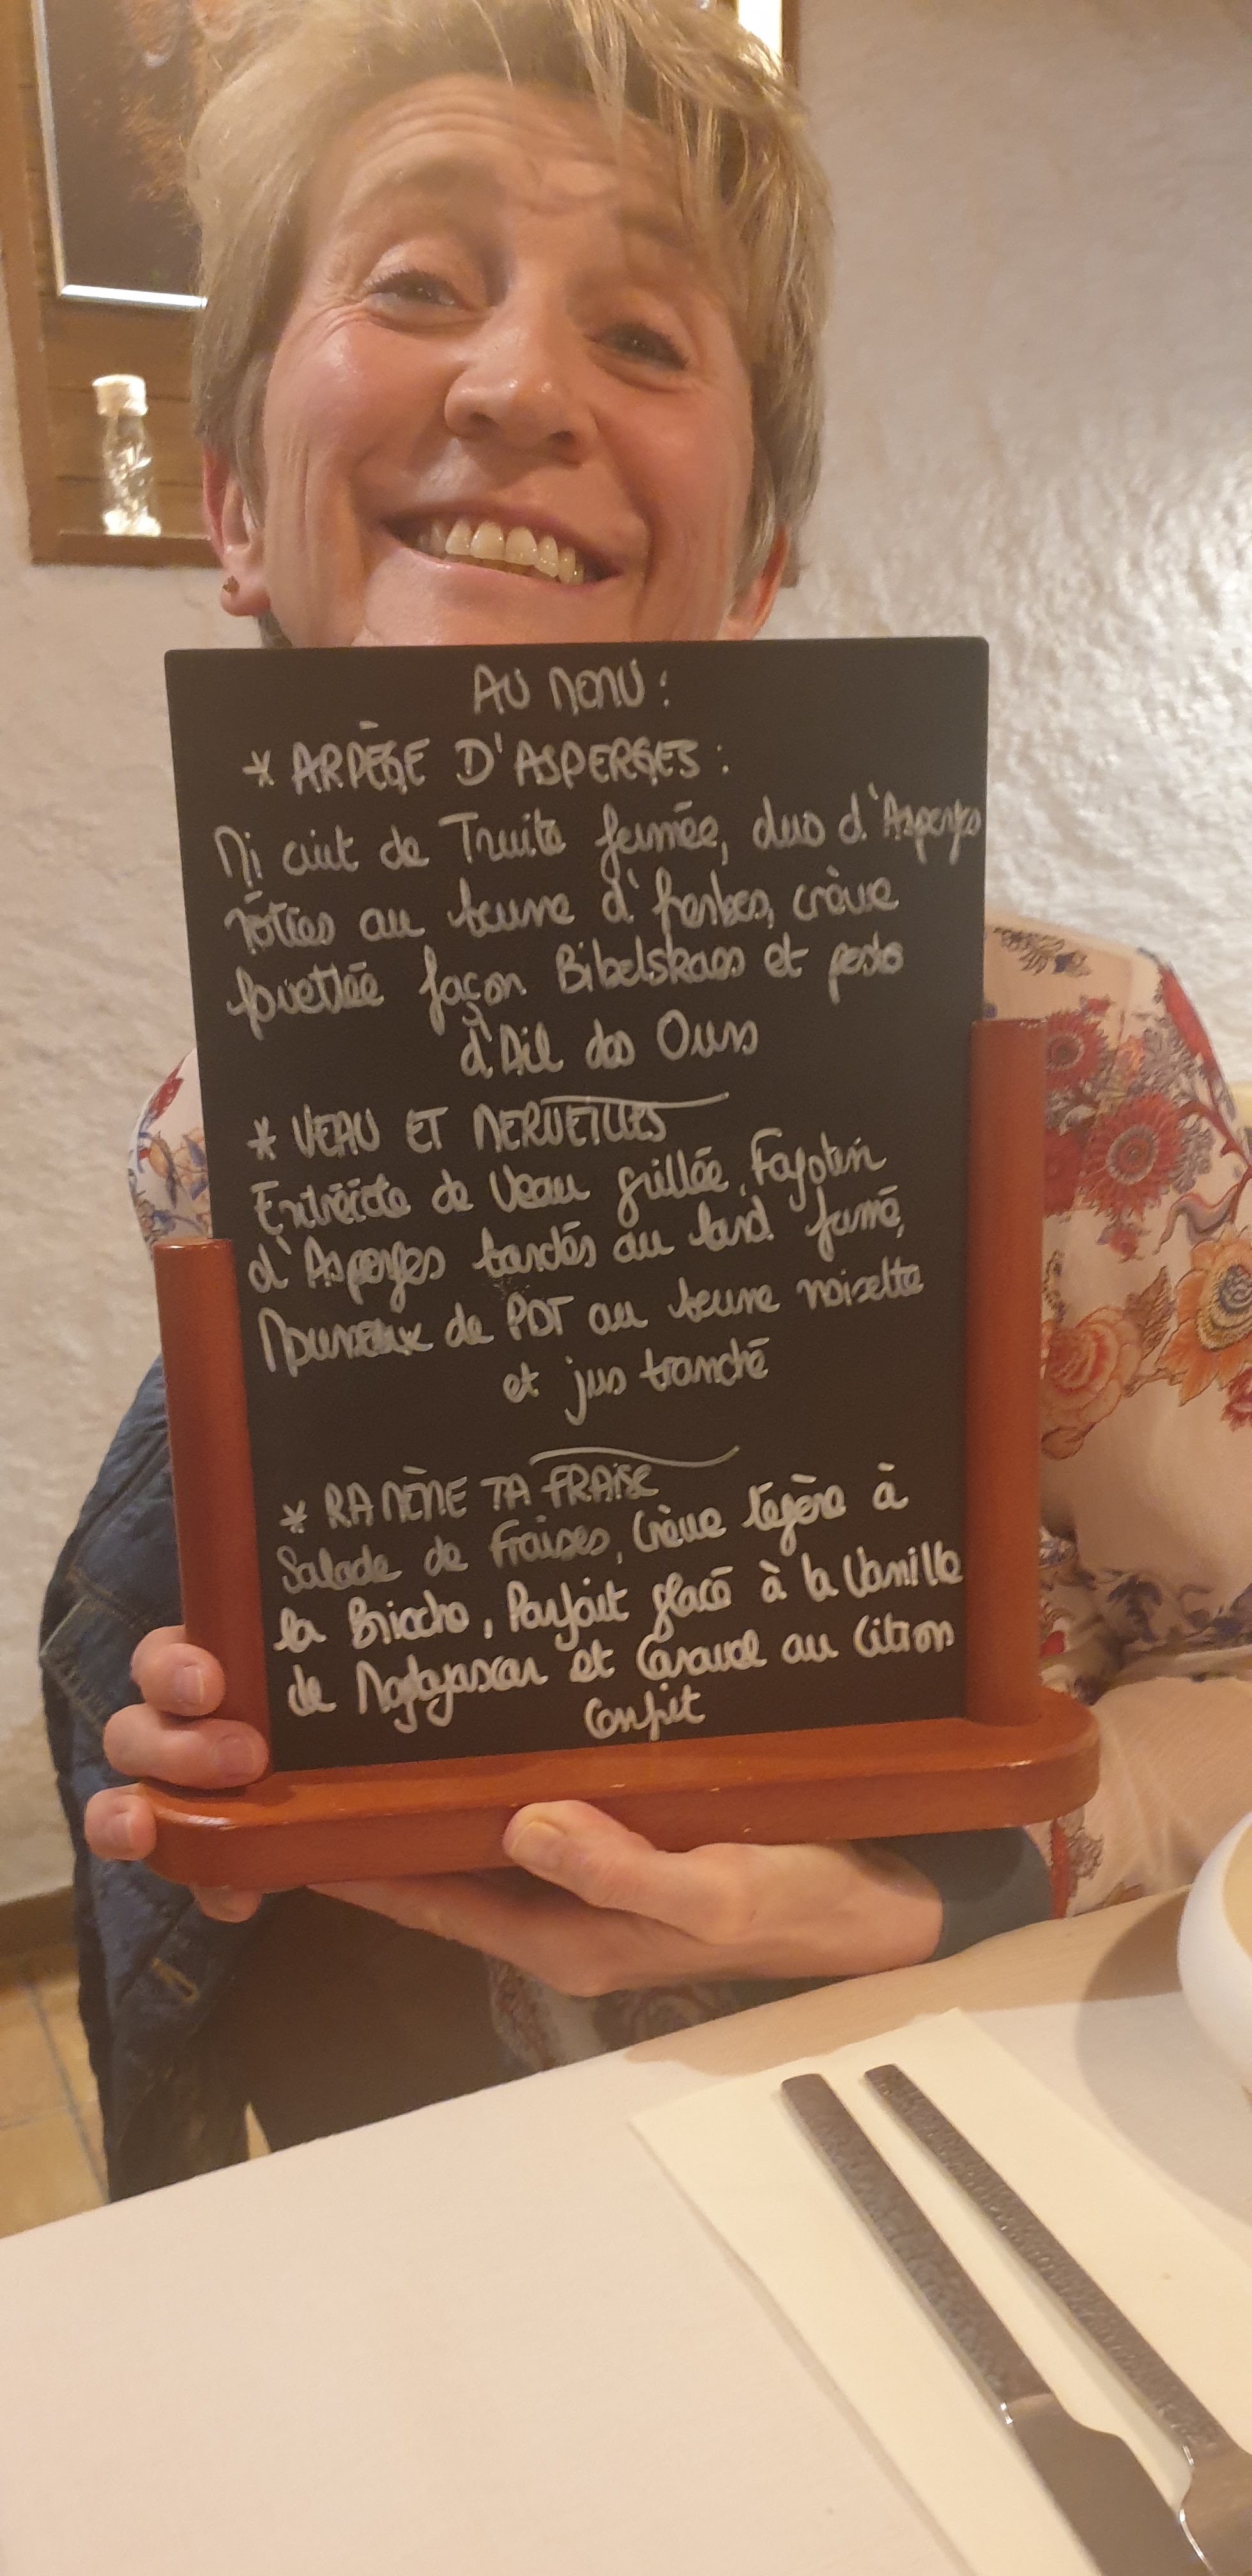 AU MENU :
* ARPÈGE D'ASPERGES :
Mi cuit de Truite fumée, duo d'Asperges
rôties au beurre d'herbes, crème
fouettée façon Bibelskaes et pesto
d'Ail des Ours
* VEAU ET MERVEILLES
Entrecôte de Veau grillée, Fagotin
d'Asperges bardés au lard fumé,
de PDT au beurre noisette
et jus tranché
* RAMÈNE TA FRAISE
Salade de Fraises, Crème légère à
la Brioche, Parfait glacé à la Vanille
de Madagascar et Caramel au Citron
Confit